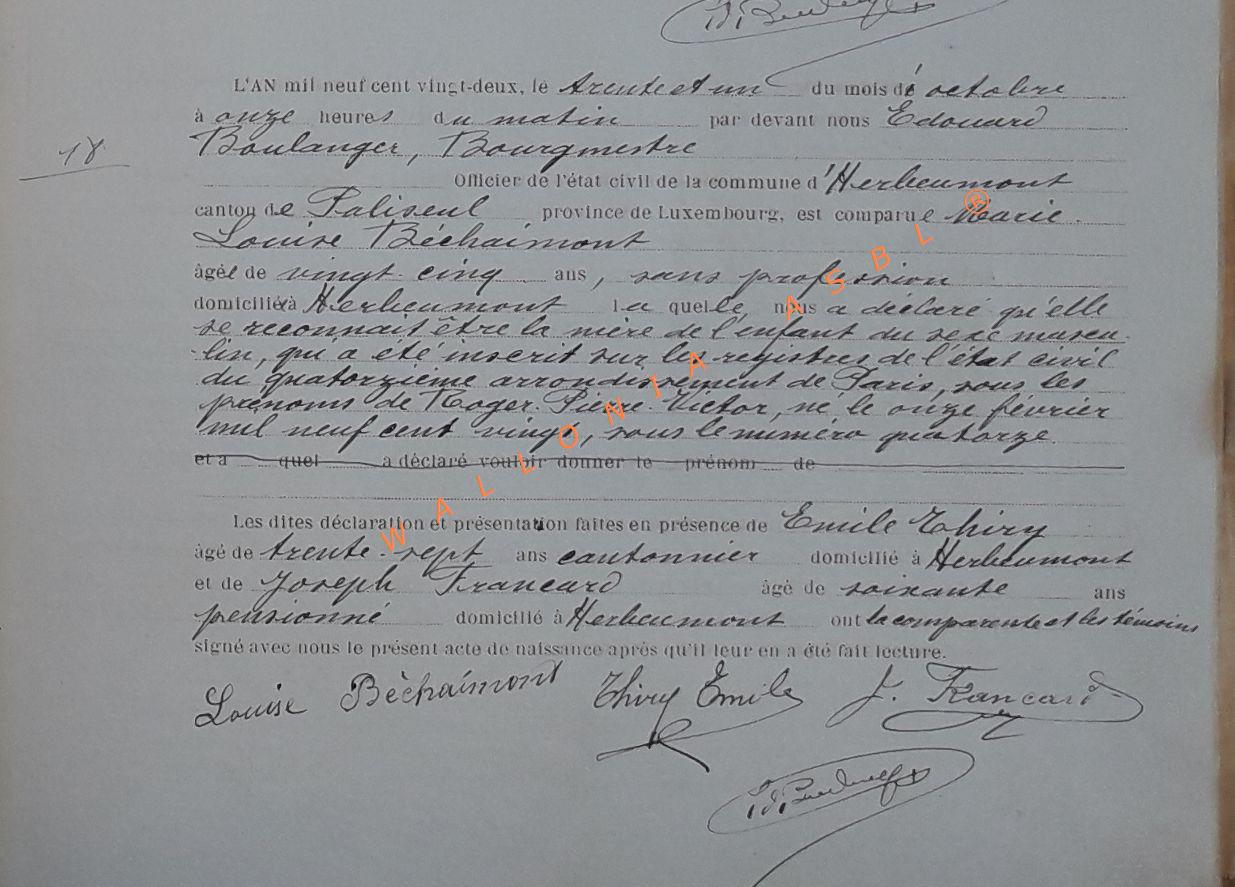 L'AN mil neuf cent vingt-deux, le trente et un du mois d'octobre
à onze heures du matin par devant nous Edouard
18
Boulanger, Bourgmestre
Officier de l'état civil de la commune d'Herbeumont
canton de Paliseul province de Luxembourg, est comparue Marie
Louise Béchaimont
âgée de vingt-cinq ans, sans profession
domiciliée à Herbeumont laquelle, nous a déclaré qu'elle
se reconnait être la mère de l'enfant du sexe mascu-
lin, qui a été inscrit sur les registres de l'état civil
du quatorzième arrondissement de Paris, sous les
prénoms de Roger-Pierre-Victor, né le onze février
mil neuf cent vingt, sous le numéro quatorze.
et a quel a déclaré vouloir donner le prénom de
Les dites déclaration et présentation faites en présence de Emile Thiry
âgé de trente-sept ans cantonnier domicilié à Herbeumont
et de Joseph Francard âgé de soixante ans
pensionné domicilié à Herbeumont ont la comparente et les témoins
signé avec nous le présent acte de naissance après qu'il leur en a été fait lecture.
Louise Bèchaimont Thiry Emile J. Francard
WALLONIA ASBL ®